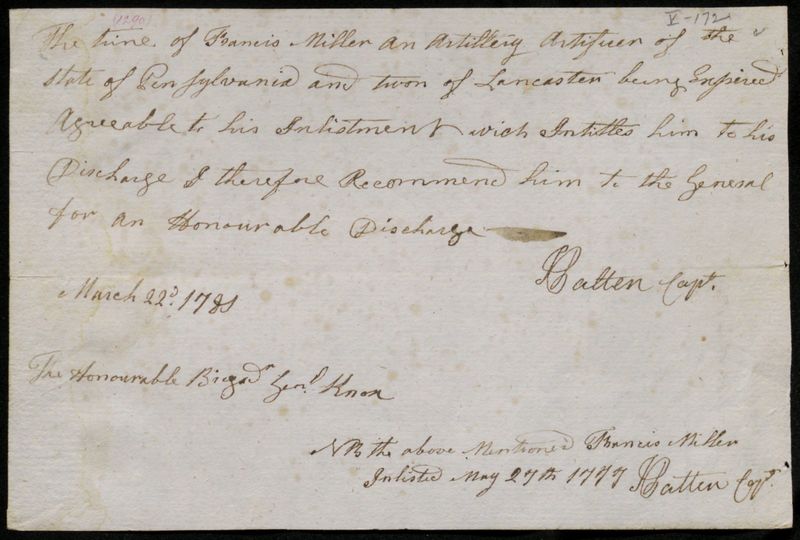 (1290)
V-172
The time of Francis Miller an Artillery Artificer of the
State of Pensylvania and twon of Lancaster being Expired
Agreeable to his Inlistment wich Intitles him to his
Discharge I therefore Recommend him to the General
for an Honourable Discharge
Patten Capt.
March 22d. 1781
The Honourable Brigadr Genl Knox
NB the above Mentioned Francis Miller
Inlisted May 27th 1777 Patten Capt.